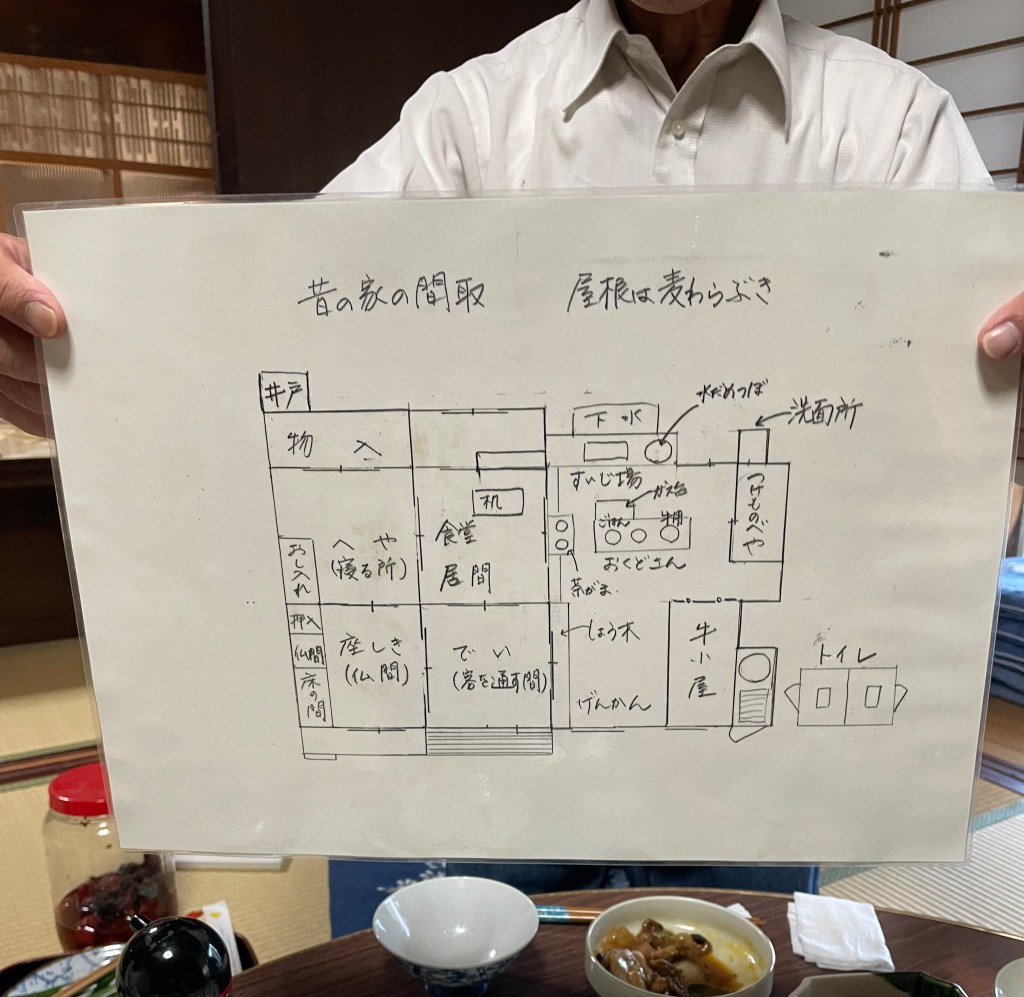 昔の家の間取　屋根は麦わらぶき
井戸
下水
水だめつぼ
洗面所
物入
すいじ場
ガス台
つけものべや
机
ごはん
牛用
食堂
居間
おくどさん
茶がま
へや
(寝る所)
おし入れ
押入
仏間
床の間
座しき
(仏間)
でい
(客を通す間)
しょう木
げんかん
牛小屋
トイレ